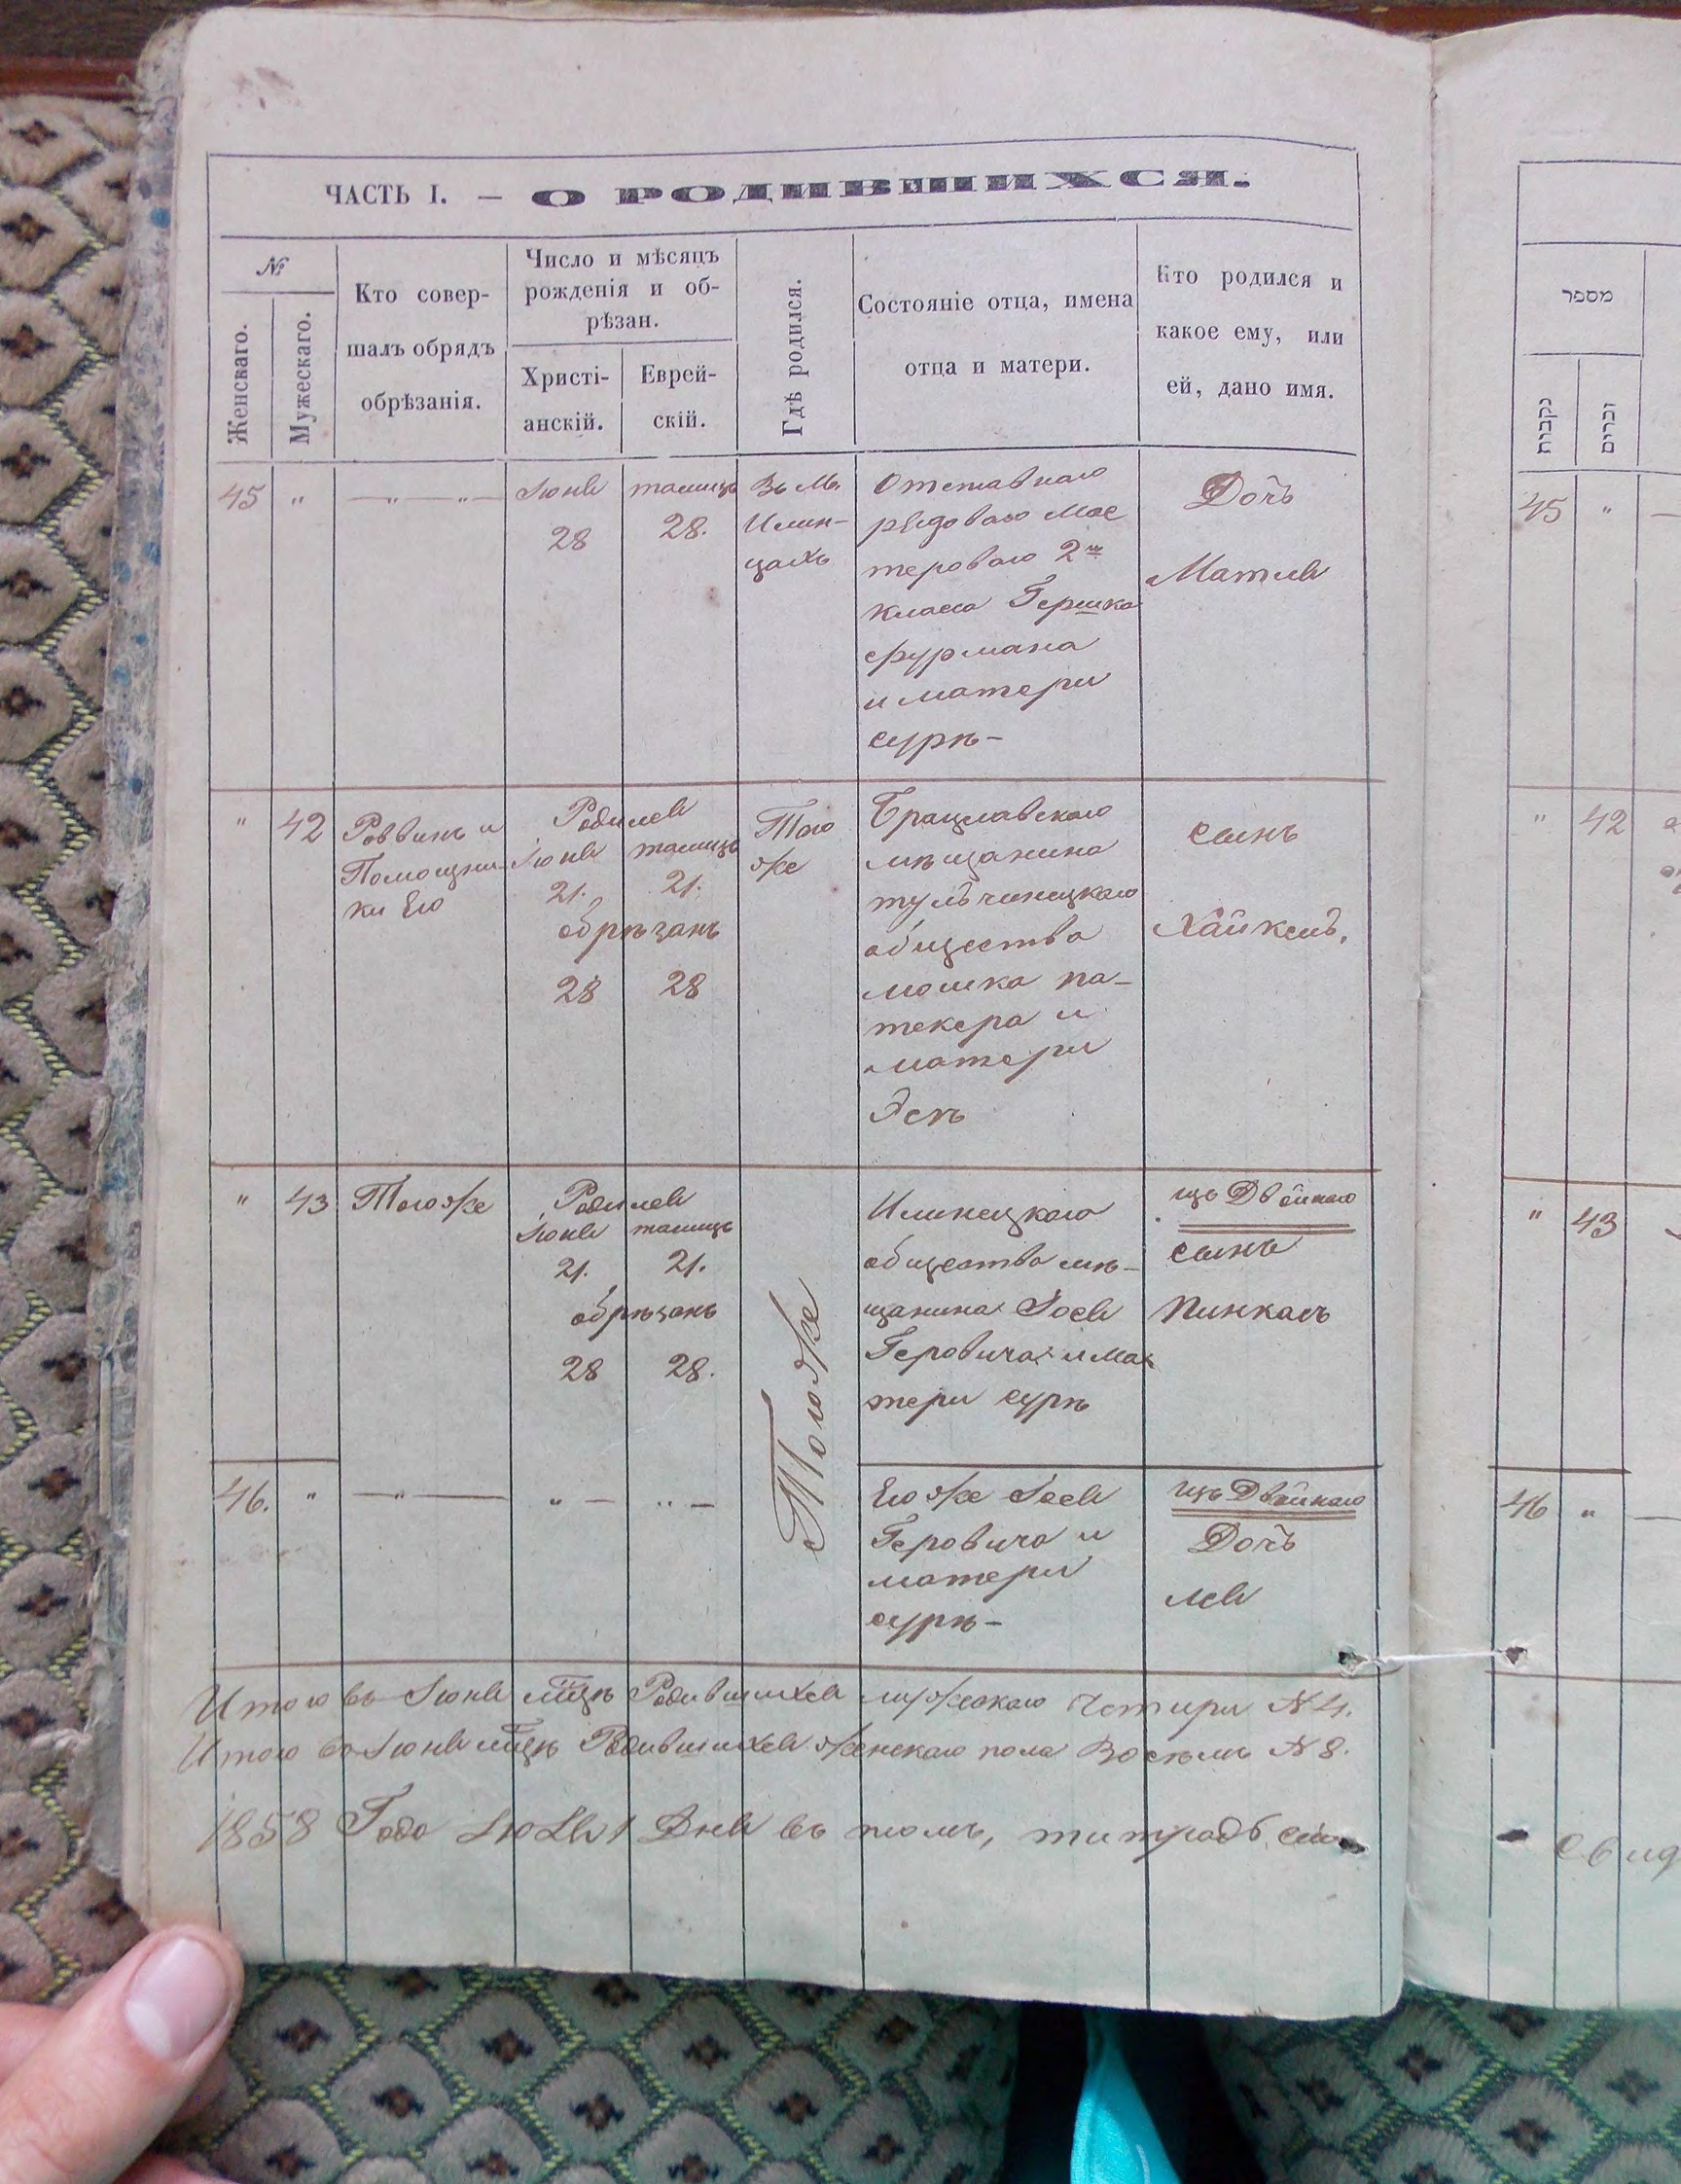 ЧАСТЬ I. — О РОДИВШИХСЯ.
№
Женскаго.
Мужескаго.
Кто совер-
шалъ обрядъ
обрѣзанія.
Число и мѣсяцъ
рожденія и об-
рѣзан.
Христі-
анскій.
Еврей-
скій.
Гдѣ родился.
Состояніе отца, имена
отца и матери.
Кто родился и
какое ему, или
ей, дано имя.
45 " — " — " —
Іюня
28
тамицъ
28.
Въ М.
Илин-
цахъ
Отставнаго
рядоваго Мас
тероваго 2го
класа Гершка
фурмана
и матери
сурѣ —
Дочь
Матля
" 42
Раввинъ и
Помощни-
ки Его
Родился
Іюня тамицъ
21. 21.
обрѣзанъ
28 28
Того
же
Брацлавскаго
мѣщанина
тульчинецкаго
общества
мошка па-
текера и
матери
Эсѣ
сынъ
Хайкель,
" 43 Того же
Родился
Іюня тамицъ
21. 21.
обрѣзанъ
28 28.
Того же
Илинецкаго
общества мѣ-
щанина Іося
Геровича и ма
тери сурѣ
изъ Двойнаго
сынъ
Пинкасъ
46. " — " —
" — " —
Его же Іося
Геровича и
матери
сурѣ —
изъ Двойнаго
Дочь
лея
Итого въ Іюня мцѣ Родившихся мужскаго Четыри №4.
Итого во Іюня мцѣ Родившихся женскаго пола Восѣмь №8.
1858 Года 1 Дня въ томъ, что титрадь сія
מספר
נקבות
זכרים
45 "
" 42
" 43
46 "
свид